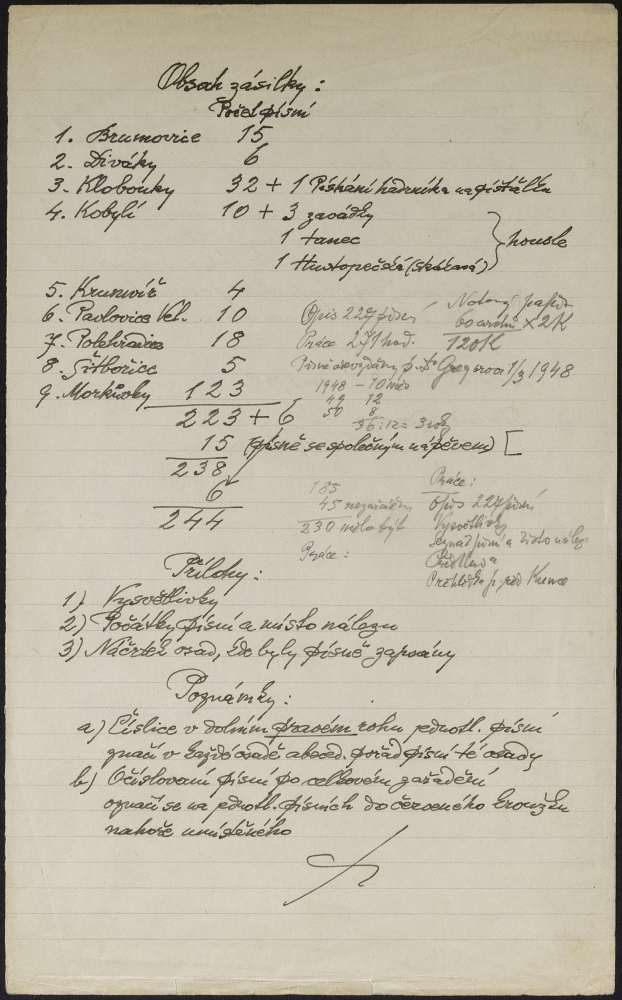 Obsah zásilky:
Počet písní
1. Brumovice 15
2. Diváky 6
3. Klobouky 32 + 1 Pískání hadrníka na píšťalku
4. Kobylí 10 + 3 zavádky
1 tanec
1 Hustopečská (skákaná) } housle
5. Krumvíř 4
6. Pavlovice Vel. 10
7. Polehradice 18
8. Šitbořice 5
9. Morkůvky 123
223 + 6
15 (písně se společným nápěvem) [
238
6
244
Opis 227 písní
Práce 271 hod.
Notový papír
60 archů x 2K
120K
Písně odevzdány p. Gregorovi 1/3 1948
1948 - 10 měs
49 12
50 8
36:12 = 3 roky
185
45
230 mělo být
Práce:
Práce:
Opis 227 písní
Vysvětlivky
Seznad písní a místo nález
Přílohy:
1) Vysvětlivky
2) Počátky písní a místo nálezu
3) Náčrtek osad, kde byly písně zapsány
Poznámky:
a) Číslice v dolním pravém rohu jednotl. písní
značí v každé osadě abeced. pořad písní té osady
b) Očíslovaní písní po celkovém zařadění
označí se na jednotl. písních do červeného kroužku
nahoře umístěného